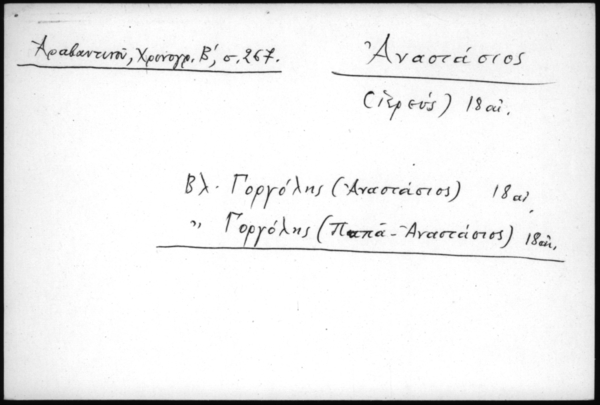 Ἀραβαντινοῦ, Χρονογρ. Β', σ. 267.
Ἀναστάσιος
(ἱερεύς) 18 αἰ.
Βλ. Γοργόλης (Ἀναστάσιος) 18 αἰ.
" Γοργόλης (Παπᾶ-Ἀναστάσιος) 18 αἰ.